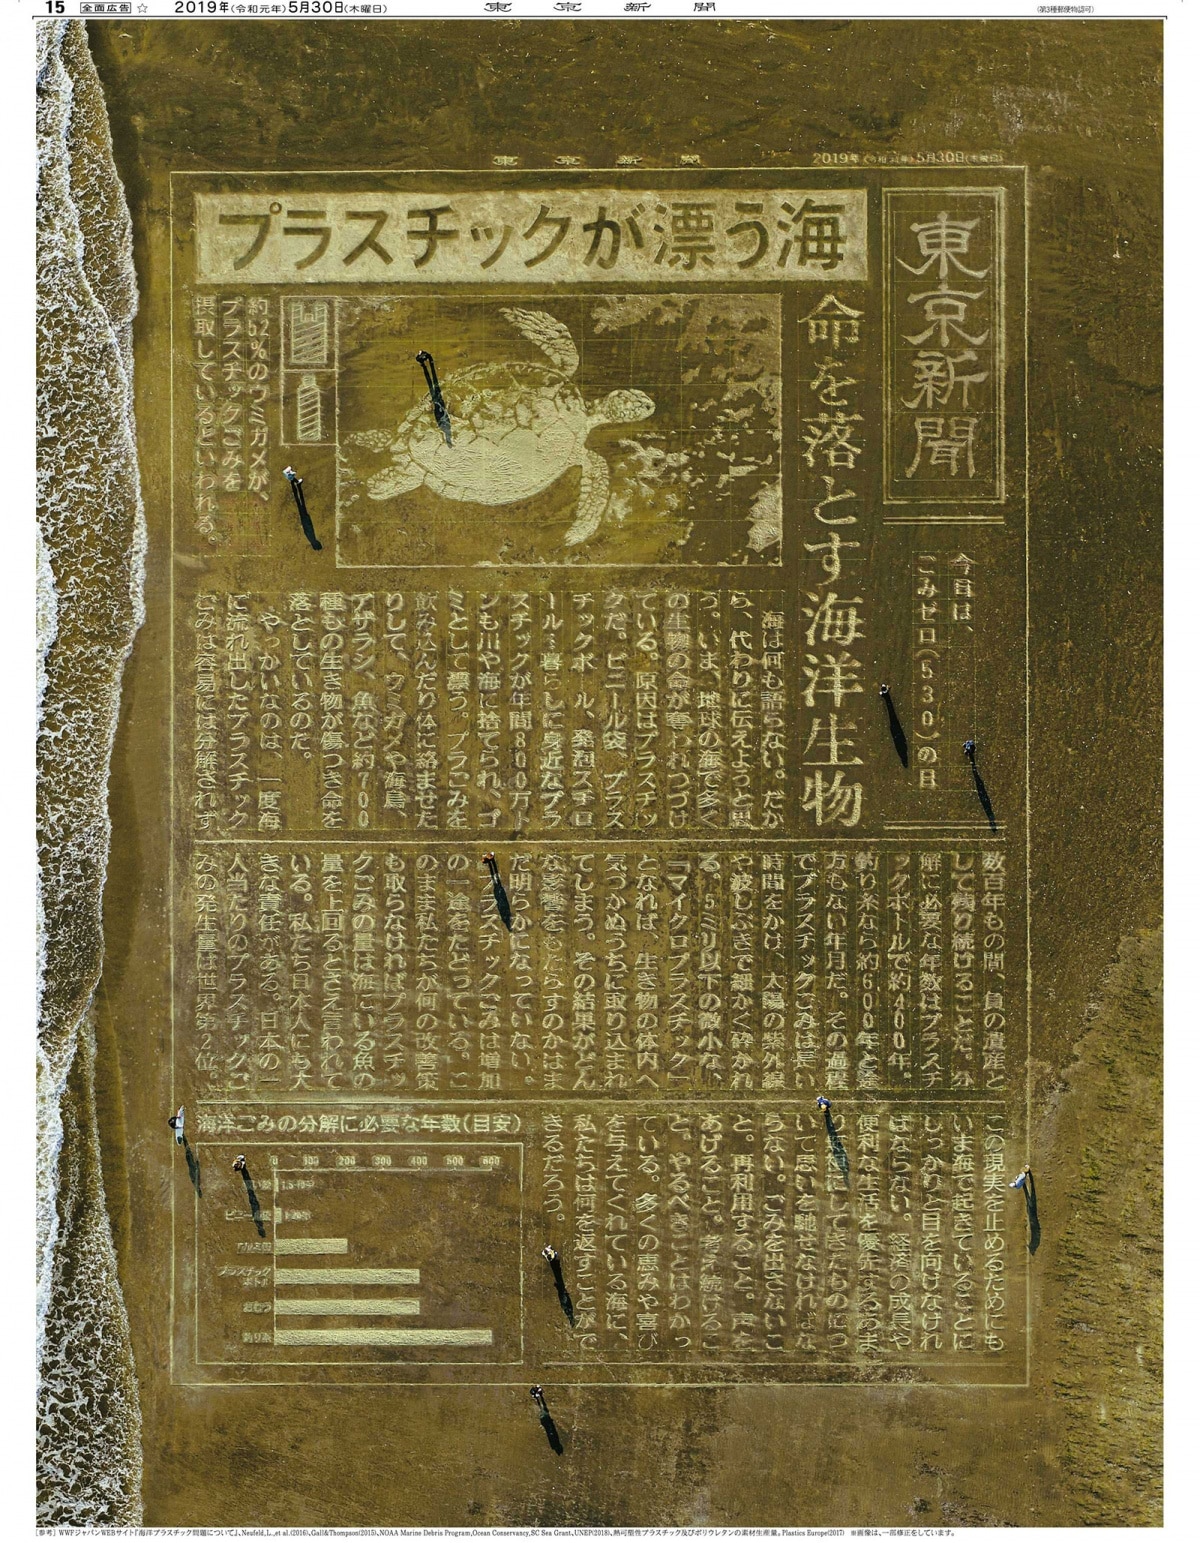 15 全面広告 ☆ 2019年(令和元年)5月30日(木曜日) 東京新聞 (第3種郵便物認可)
東京新聞 2019年(令和元年)5月30日(木曜日)
東京新聞
プラスチックが漂う海
命を落とす海洋生物
今日は、
ごみゼロ(530)の日
約52%のウミガメが、
プラスチックごみを
摂取しているといわれる。
海は何も語らない。だか
ら、代わりに伝えようと思
う。いま、地球の海で多く
の生物の命が奪われつづけ
ている。原因はプラスチッ
クだ。ビニール袋、プラス
チックボトル、発泡スチロ
ール…暮らしに身近なプラ
スチックが年間800万ト
ンも川や海に捨てられ、ゴ
ミとして漂う。プラごみを
飲み込んだり体に絡ませた
りして、ウミガメや海鳥、
アザラシ、魚など約700
種もの生き物が傷つき命を
落としているのだ。
やっかいなのは、一度海
に流れ出したプラスチック
ごみは容易には分解されず、
数百年もの間、負の遺産と
して残り続けることだ。分
解に必要な年数はプラスチ
ックボトルで約400年。
釣り糸なら約600年と途
方もない年月だ。その過程
でプラスチックごみは長い
時間をかけ、太陽の紫外線
や波しぶきで細かく砕かれ
る。5ミリ以下の微小な、
「マイクロプラスチック」
となれば、生き物の体内へ
気づかぬうちに取り込まれ
てしまう。その結果がどん
な影響をもたらすのかはま
だ明らかになっていない。
プラスチックごみは増加
の一途をたどっている。こ
のまま私たちが何の改善策
も取らなければプラスチッ
クごみの量は海にいる魚の
量を上回るとさえ言われて
いる。私たち日本人にも大
きな責任がある。日本の一
人当たりのプラスチックご
みの発生量は世界第2位。
この現実を止めるためにも
いま海で起きていることに
しっかりと目を向けなけれ
ばならない。経済の成長や
便利な生活を優先するあま
り
にしてきたものにつ
いて思いを馳せなければな
らない。ごみを出さないこ
と。再利用すること。声を
あげること。考え続けるこ
と。やるべきことはわかっ
ている。多くの恵みや喜び
を与えてくれている海に、
私たちは何を返すことがで
きるだろう。
海洋ごみの分解に必要な年数(目安)
0 100 200 300 400 500 600
プラスチック
ボトル
おむつ
釣り糸
[参考] WWFジャパンWEBサイト『海洋プラスチック問題について』、Neufeld,L.,et al.(2016)、Gall&Thompson(2015)、NOAA Marine Debris Program,Ocean Conservancy,SC Sea Grant、UNEP(2018)、熱可塑性プラスチック及びポリウレタンの素材生産量。Plastics Europe(2017) ※画像は、一部修正をしています。